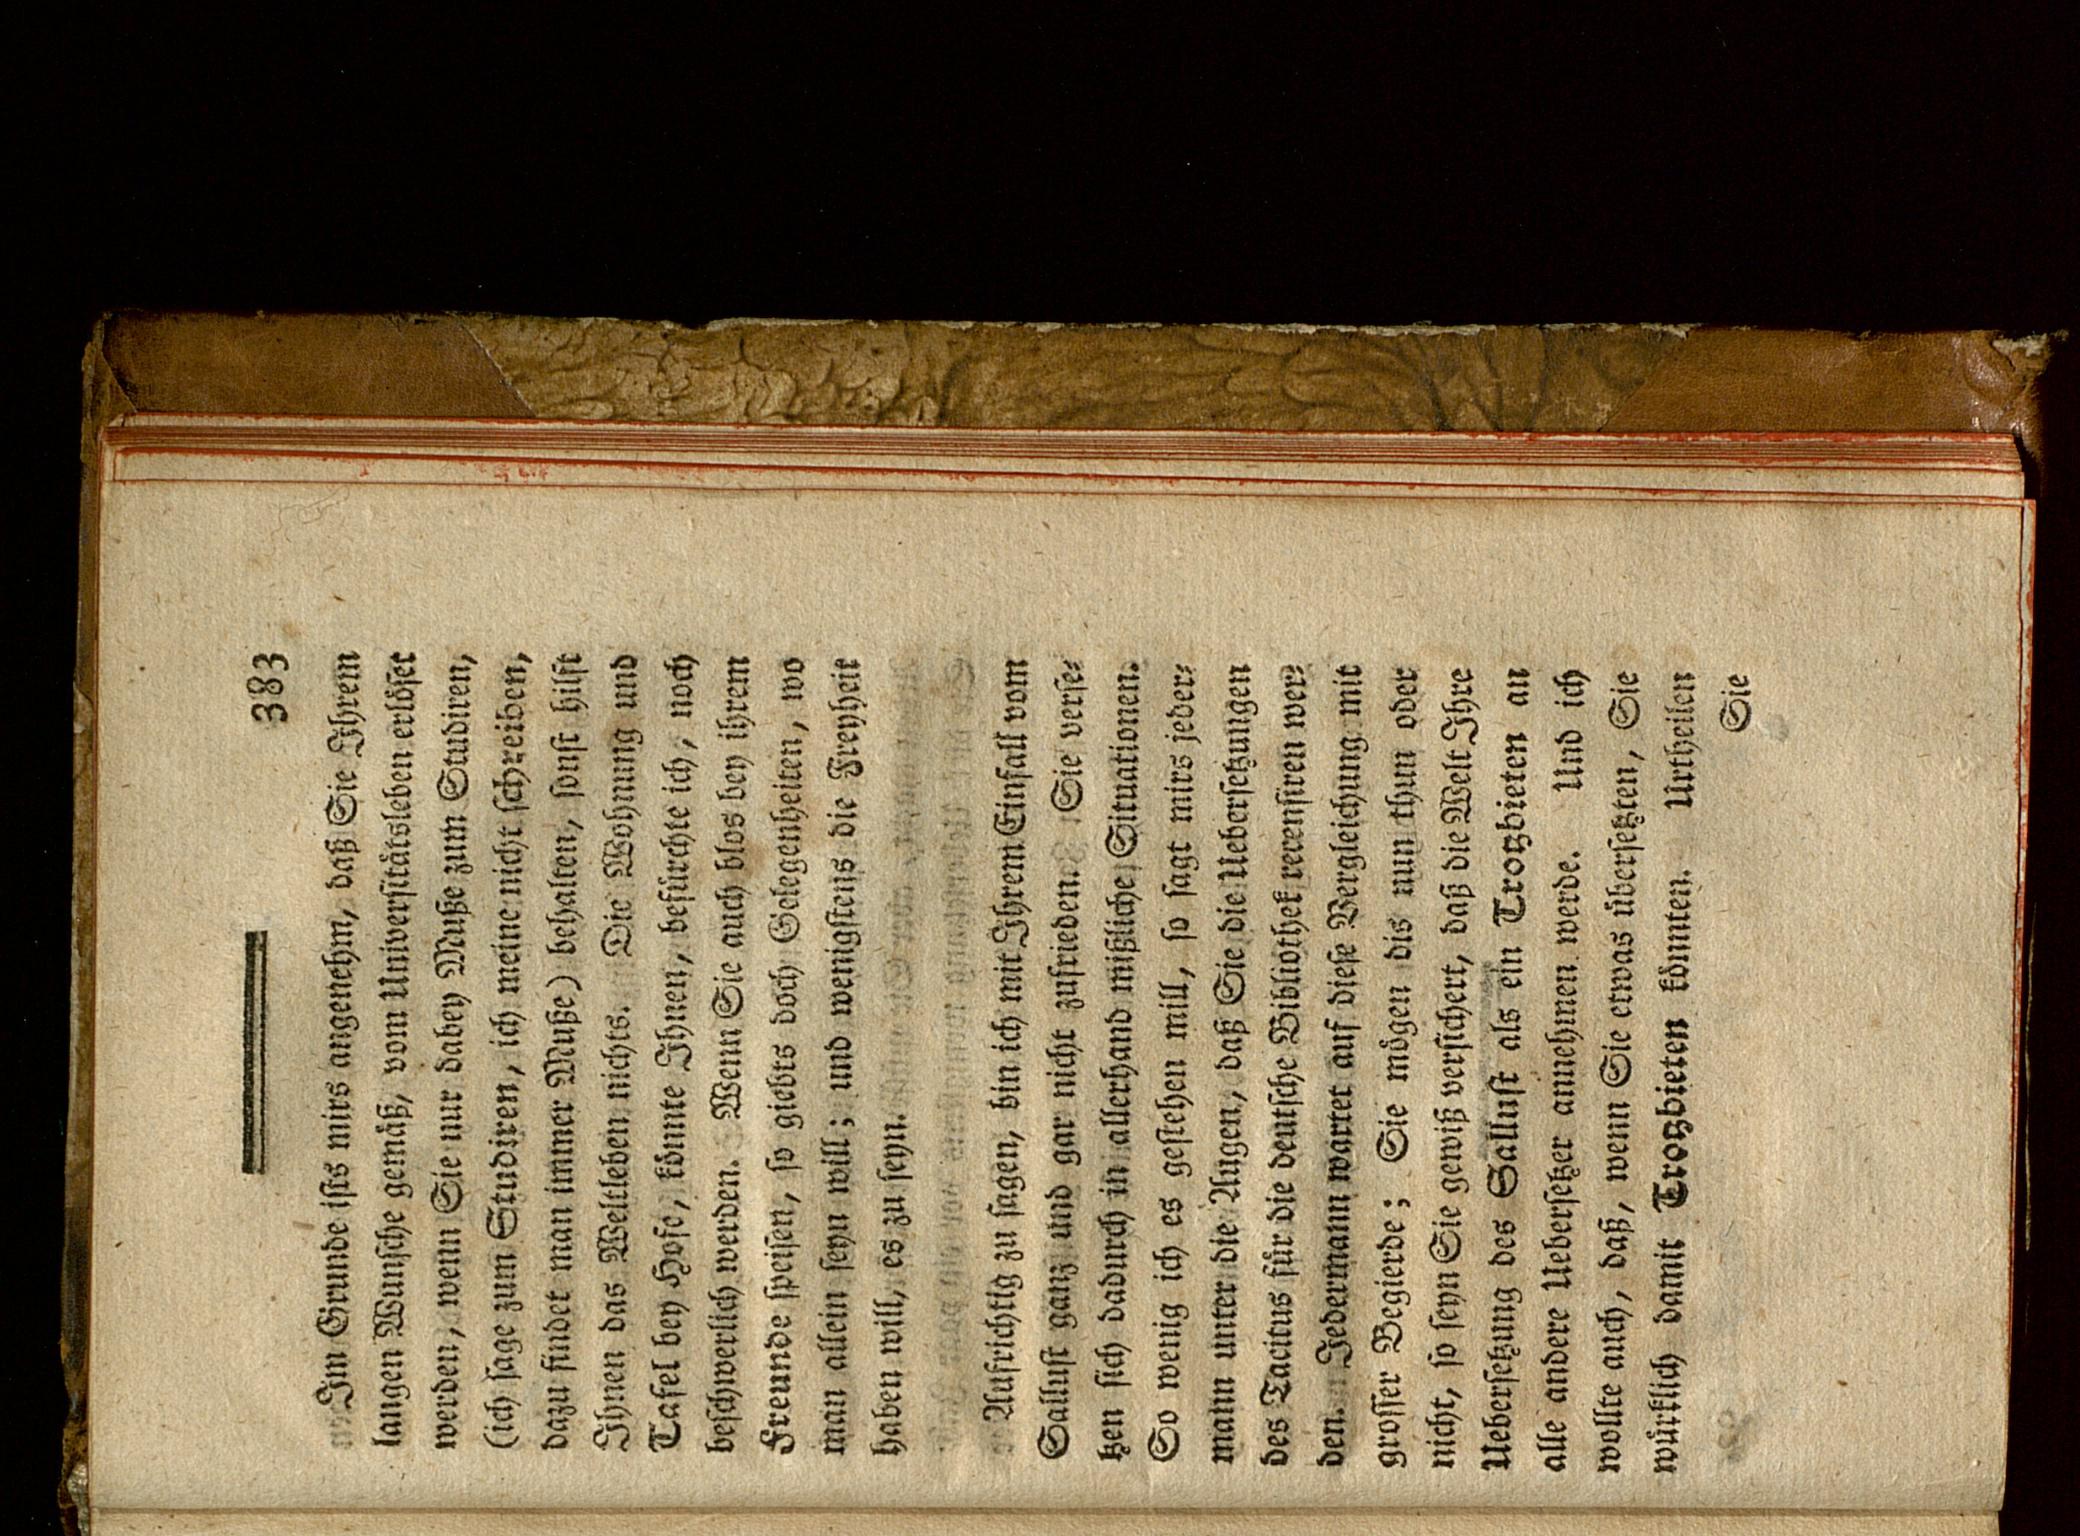 383
Im Grunde iſts mirs angenehm, daß Sie Ihrem
langen Wunſche gemäß, vom Univerſitätsleben erlöſet
werden, wenn Sie nur dabey Muße zum Studiren,
(ich ſage zum Studiren, ich meine nicht ſchreiben,
dazu findet man immer Muße) behalten, ſonſt hilft
Ihnen das Weltleben nichts. Die Wohnung und
Tafel bey Hofe, könnte Ihnen, befürchte ich, noch
beſchwerlich werden. Wenn Sie auch blos bey ihrem
Freunde ſpeiſen, ſo giebts doch Gelegenheiten, wo
man allein ſeyn will; und wenigſtens die Freyheit
haben will, es zu ſeyn.
Aufrichtig zu ſagen, bin ich mit Ihrem Einfall vom
Salluſt ganz und gar nicht zufrieden. Sie verſe⸗
tzen ſich dadurch in allerhand mißliche Situationen.
So wenig ich es geſtehen will, ſo ſagt mirs jeder⸗
mann unter die Augen, daß Sie die Ueberſetzungen
des Tacitus für die deutſche Bibliothek recenſiren wer⸗
den. Jedermann wartet auf dieſe Vergleichung mit
groſſer Begierde; Sie mögen dis nun thun oder
nicht, ſo ſeyn Sie gewiß verſichert, daß die Welt Ihre
Ueberſetzung des Salluſt als ein Trotzbieten an
alle andere Ueberſetzer annehmen werde. Und ich
wollte auch, daß, wenn Sie etwas überſetzten, Sie
würklich damit Trotzbieten könnten. Urtheilen
Sie